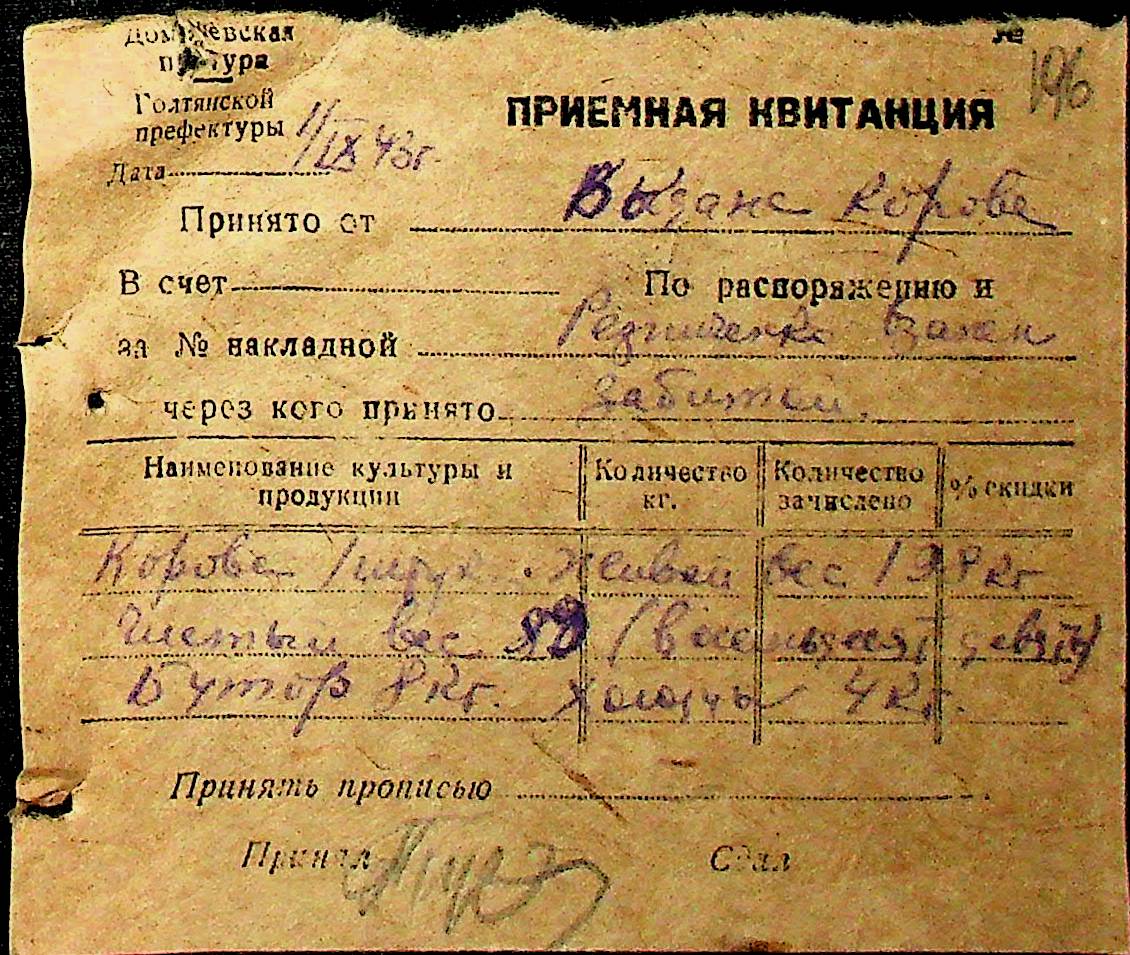 Доманевская
претура
Голтянской
префектуры
№ 196
ПРИЕМНАЯ КВИТАНЦИЯ
Дата 11/IX 43г.
Принято от Выдана Корова
В счет По распоряжению и
за № накладной Резниченко
через кого принято
Наименование культуры и продукции Количество кг. Количество зачислено % скидки
Корова 1 штука. живой вес 198 кг
Чистый вес 89 (восемьдесят девять)
Бутор 8 кг. 4 кг.
Принять прописью
Принял Сдал